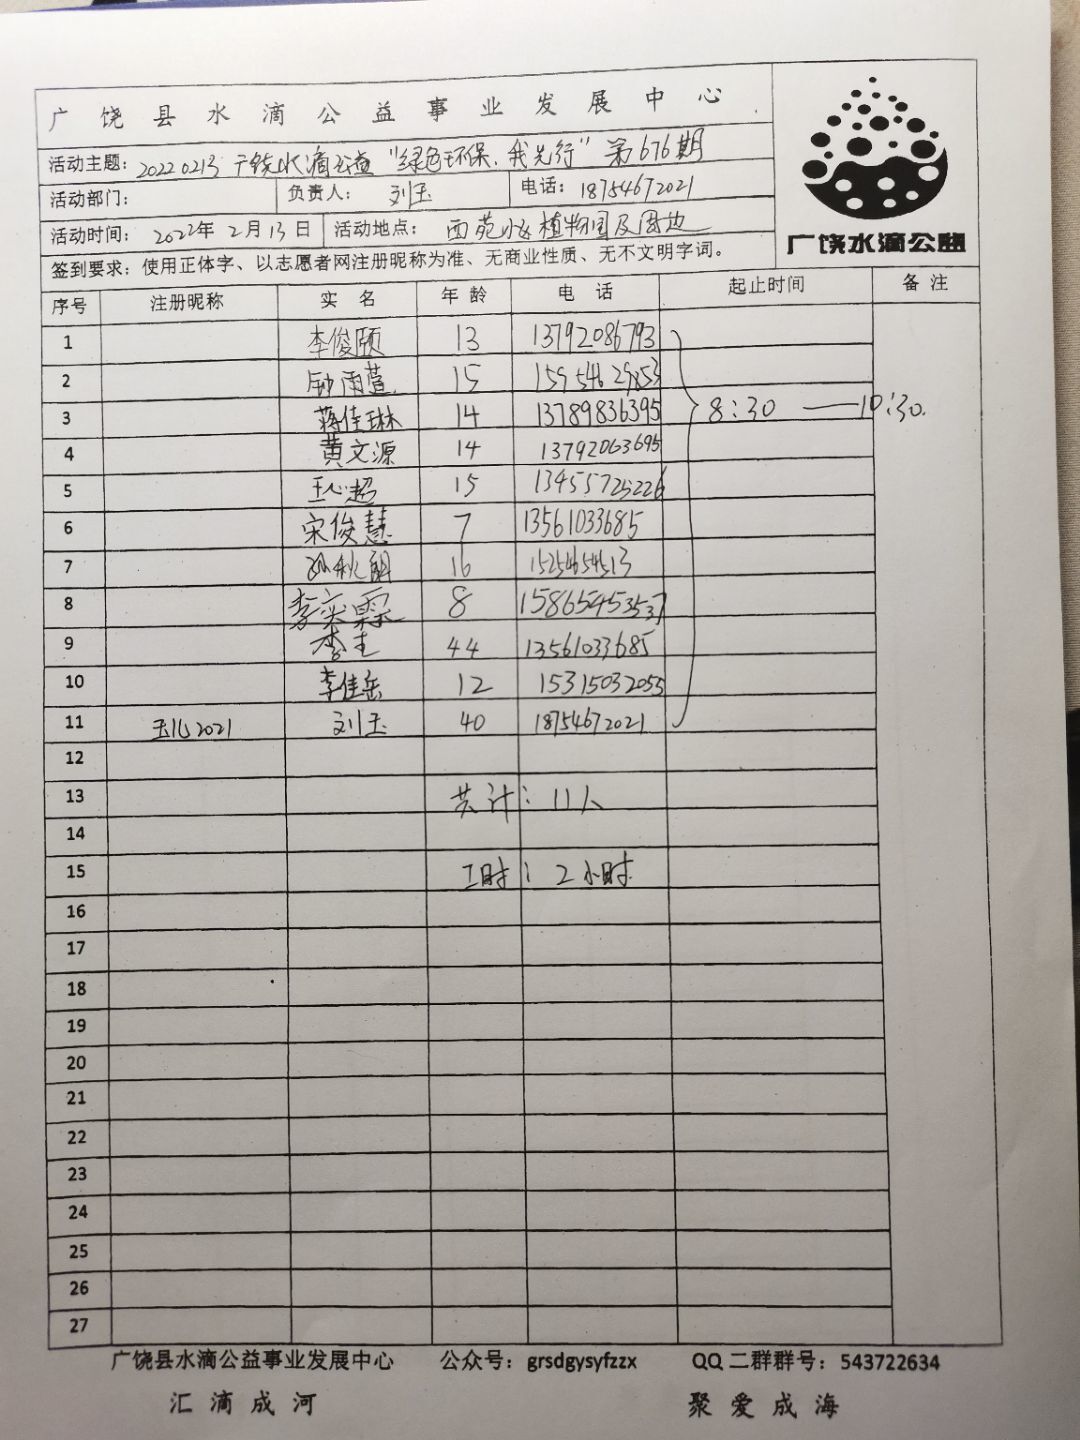 广饶县水滴公益事业发展中心
活动主题：20220213 广饶水滴公益"绿色环保，我先行"第676期
活动部门： 负责人：刘玉 电话：18754672021
活动时间：2022年2月13日 活动地点：西苑 植物园及周边
签到要求：使用正体字、以志愿者网注册昵称为准、无商业性质、无不文明字词。
广饶水滴公益
序号 注册昵称 实名 年龄 电话 起止时间 备注
1 李俊颐 13 13792086793
2 雨萱 15 15954629853
3 蒋佳琳 14 13789836395 8:30 ——10:30.
4 黄文源 14 13792063695
5 王心超 15 13455725226
6 宋俊慧 7 13561033685
7 孙秋 16 15254654513
8 李奕霖 8 15865453537
9 李 44 13561033685
10 李佳岳 12 15315032055
11 玉儿2021 刘玉 40 18754672021
12
13 共计：11人
14
15 工时：2小时
16
17
18
19
20
21
22
23
24
25
26
27
广饶县水滴公益事业发展中心 公众号：grsdgysyfzzx QQ二群群号：543722634
汇滴成河 聚爱成海